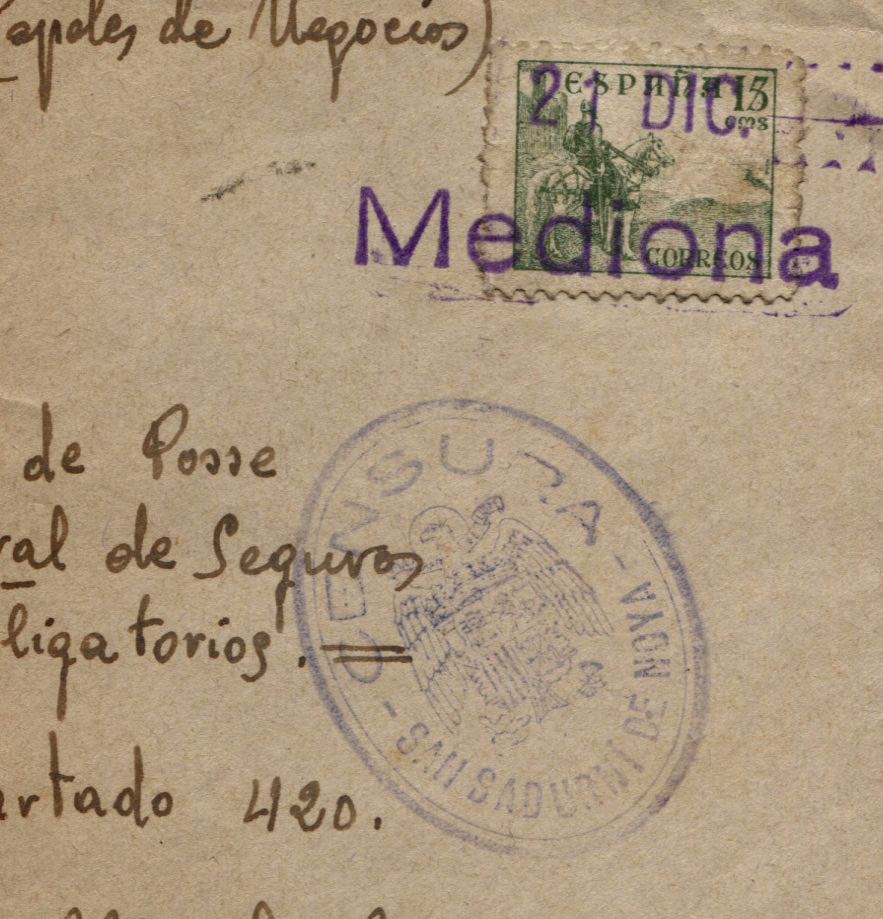 apeles de Negocios)
ESPAÑA 15
cms
21 DIC.
CORREOS
Mediona
de Posse
ral de Seguros
ligatorios.
CENSURA
- SAN SADURNI DE NOYA -
rtado 420.